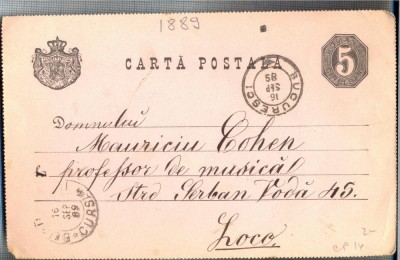 1889
CARTĂ POSTALĂ 5
BUCURESCI
16
SEP
89
Domnului
Mauriciu Cohen
professor de musicăl
Strd Serban Vodă 45.
Loco.
16
SEP
89
CURS